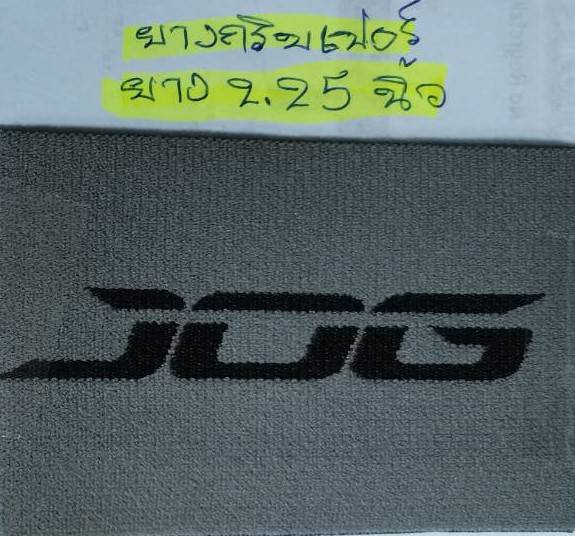 ยางกริบเปอร์
ยาง 2.25 นิ้ว
JOG